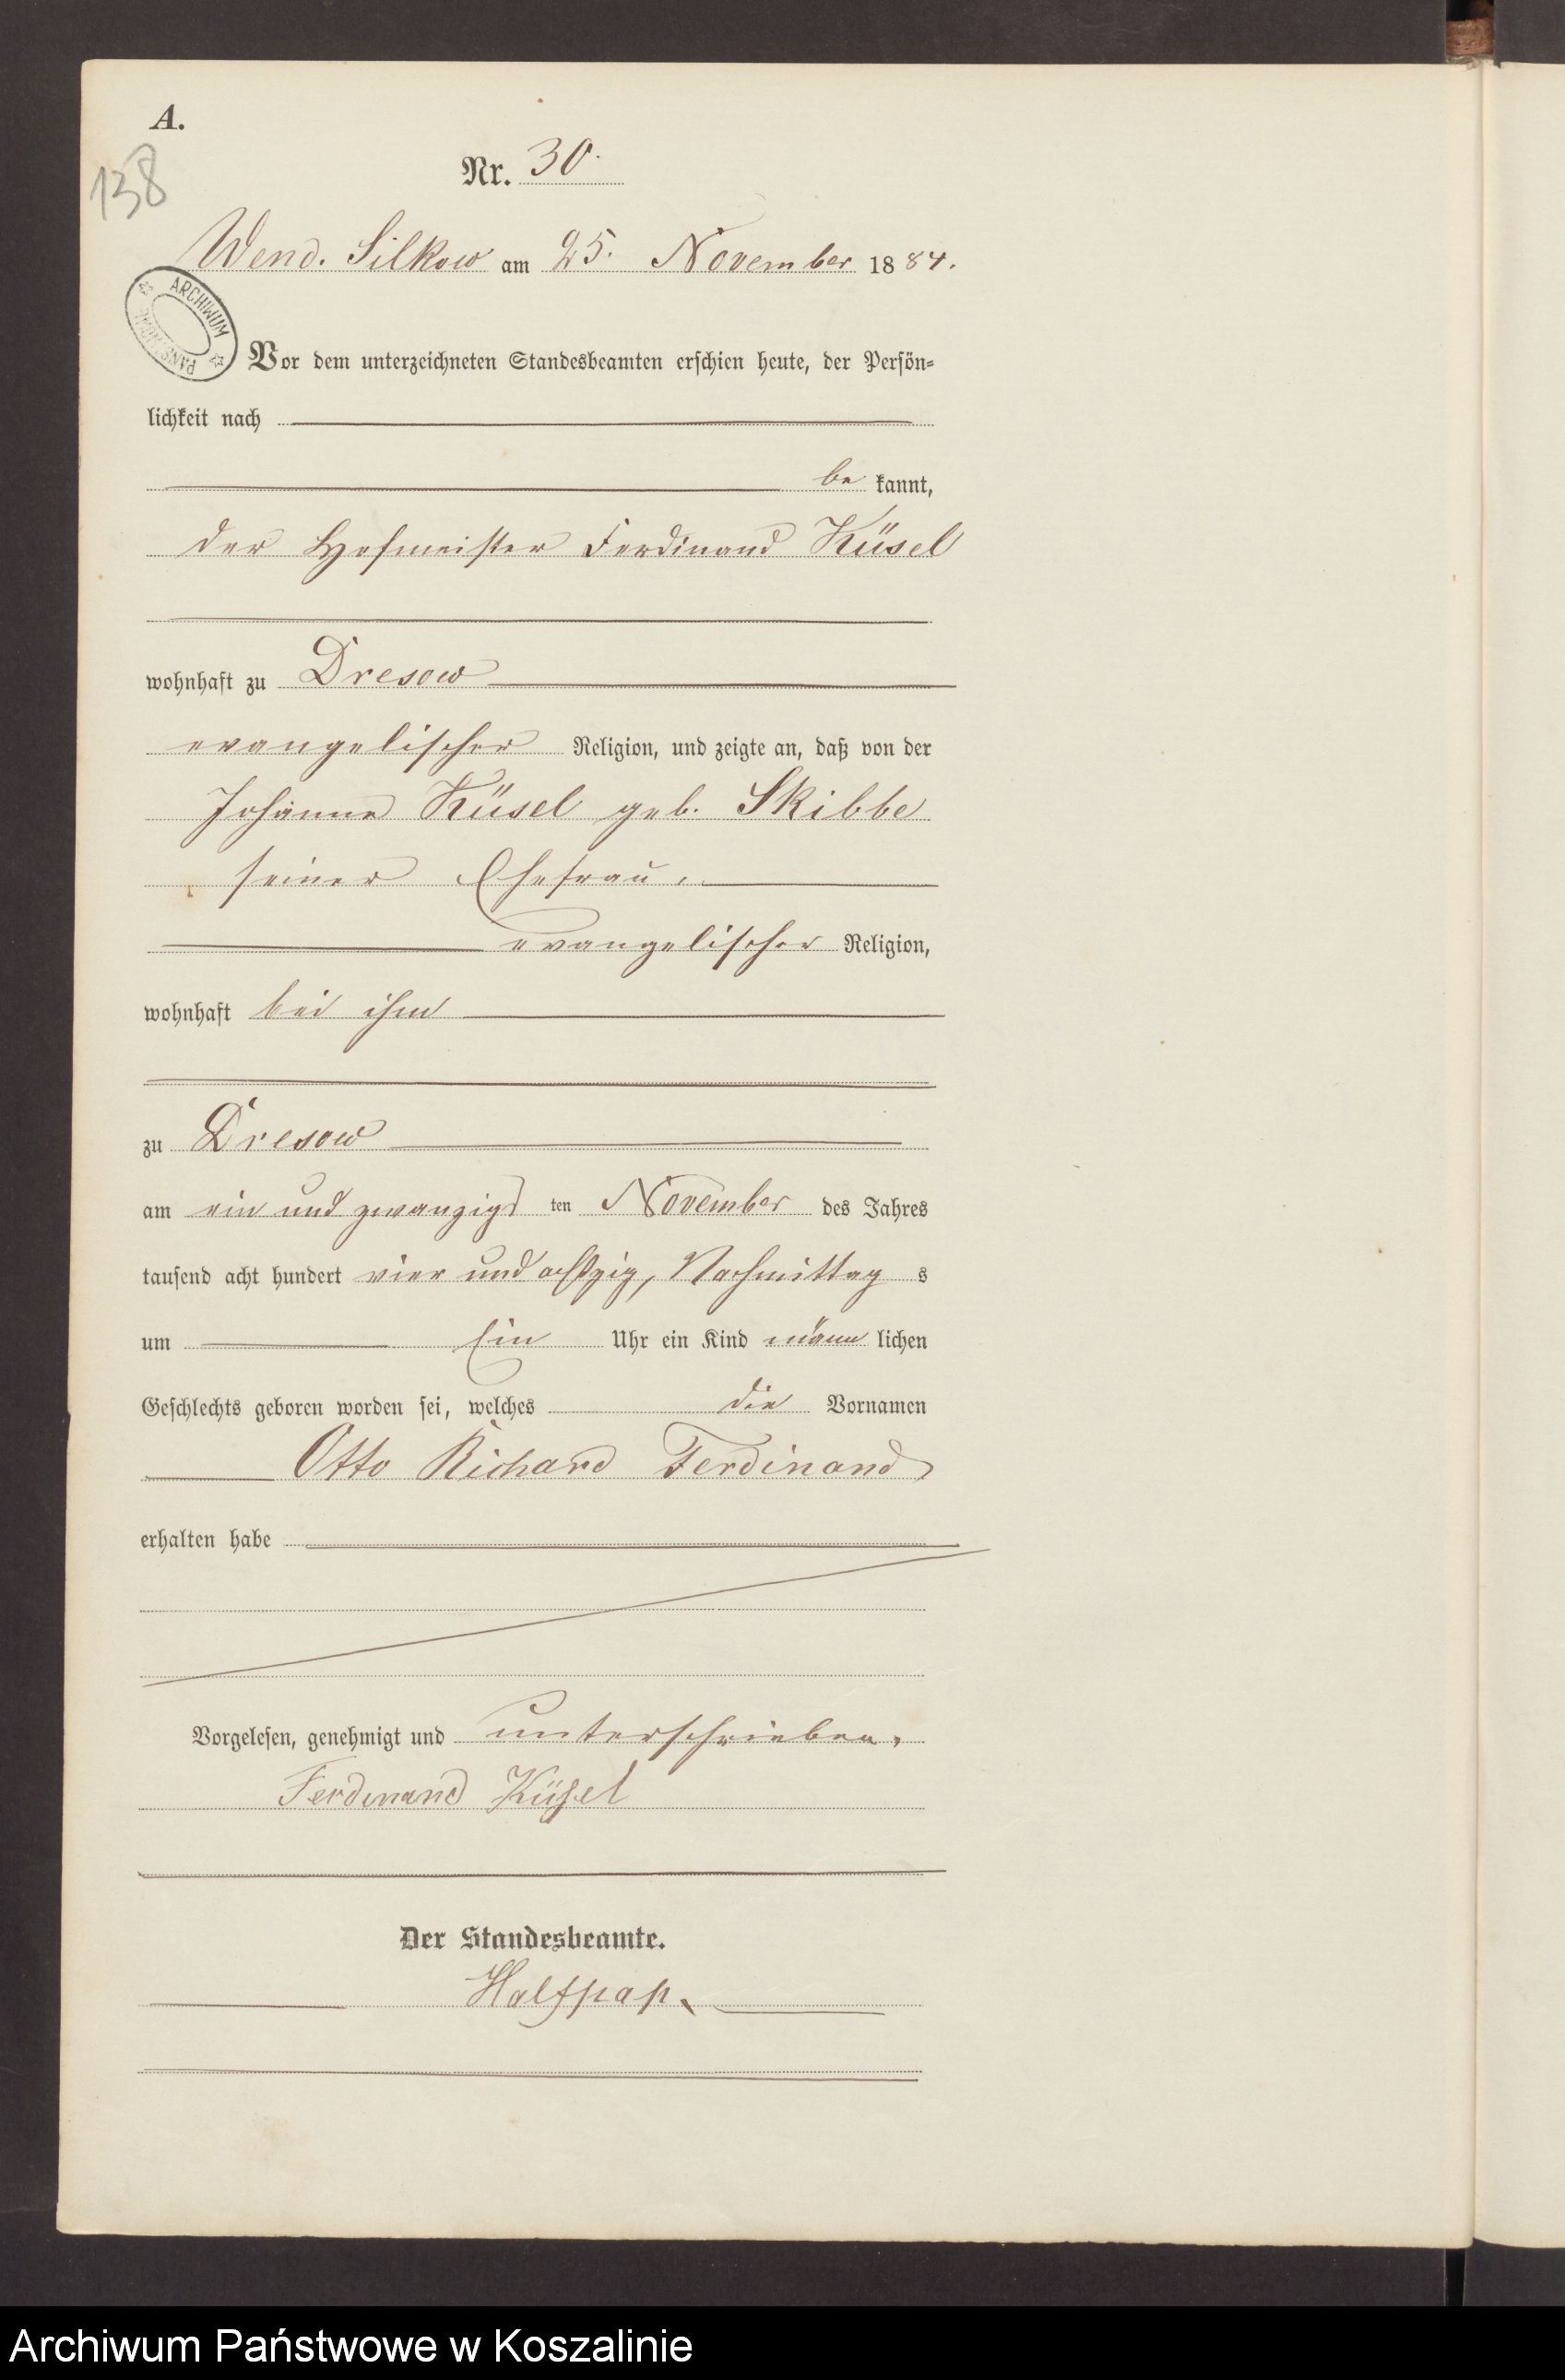 A.
138
Nr. 30.
Wend. Silkow am 25. November 1884.
ARCHIWUM
Vor dem unterzeichneten Standesbeamten erschien heute, der Persön-
lichkeit nach
be kannt,
der Hofmeister Ferdinand Küsel
wohnhaft zu Dresow
evangelischer Religion, und zeigte an, daß von der
Johanne Küsel geb. Skibbe
seiner Ehefrau,
evangelischer Religion,
wohnhaft bei ihm
zu Dresow
am ein und zwanzigs ten November des Jahres
tausend acht hundert vier und achtzig, Nachmittag s
um Ein Uhr ein Kind männ lichen
Geschlechts geboren worden sei, welches die Vornamen
Otto Richard Ferdinand
erhalten habe
Vorgelesen, genehmigt und unterschrieben.
Ferdinand Küsel
Der Standesbeamte.
Halfpap.
Archiwum Państwowe w Koszalinie